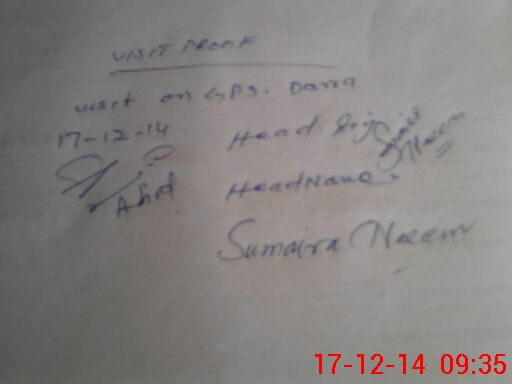 VISIT PROOF
visit on GPS. Darra
17-12-14 Head Sig Sumaira Naeem
Head Name.
Sumaira Naeem
17-12-14 09:35